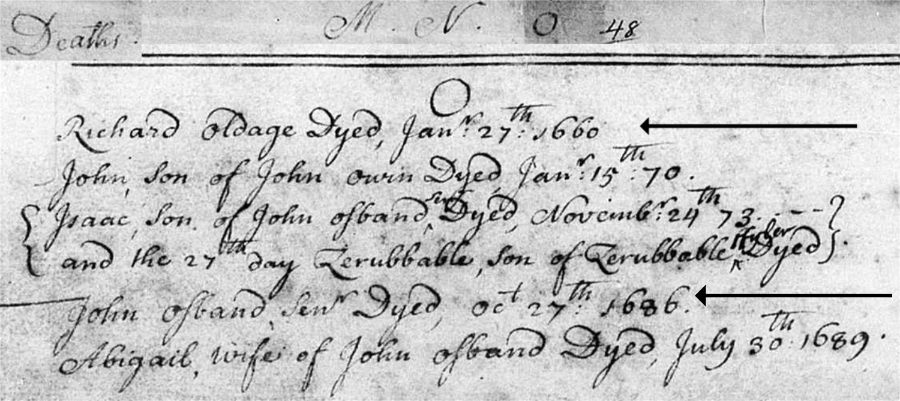 Deaths. M. N. O 48
O
Richard Oldage Dyed, Janr. 27th: 1660
John, son of John owin Dyed, Janr. 15th: 70.
Isaac, son of John osband, senr Dyed, Novembr. 24th 73.
and the 27th day Zerubbable, son of Zerubbable Dyed.
John osband, senr Dyed, Oct 27th: 1686.
Abigail, wife of John osband Dyed, July 30th: 1689.